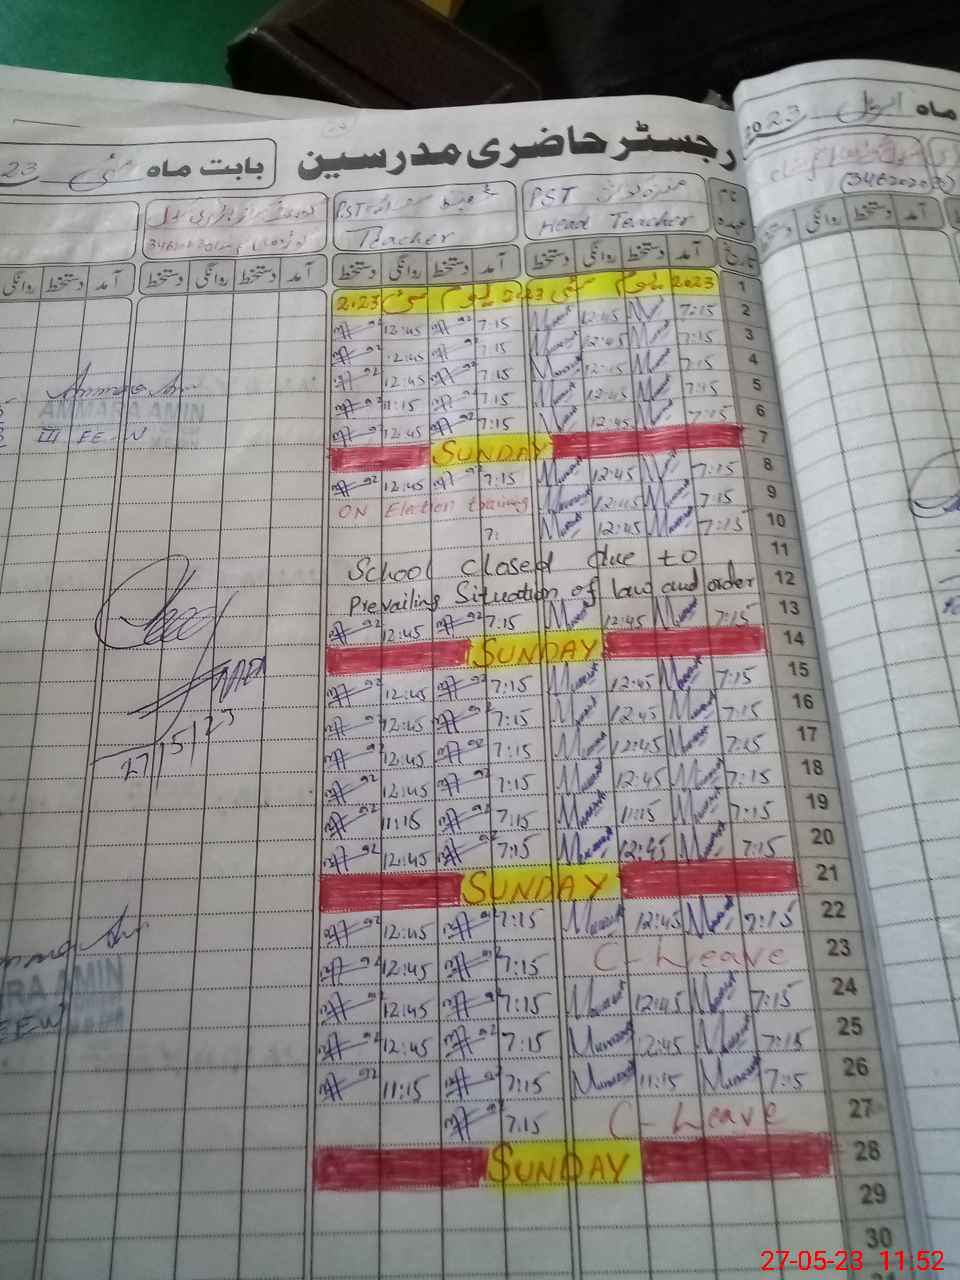 رجسٹر حاضری مدرسین
بابت ماہ مئی 23
ماہ اپریل 2023
PST
Head Teacher
PST
Teacher
تاریخ آمد دستخط روانگی دستخط آمد دستخط روانگی دستخط آمد دستخط روانگی دستخط آمد دستخط روانگی
1 2023 یکم مئی 2023 یکم مئی 2023
2 7:15 12:45 7:15 12:45
3 7:15 12:45 7:15 12:45
4 7:15 12:45 7:15 12:45
5 7:15 12:45 7:15 11:15
6 7:15 12:45 7:15 12:45
7 SUNDAY
8 7:15 12:45 7:15 12:45
9 7:15 12:45 ON Election training
10 7:15 12:45 7:
11 School closed due to
12 Prevailing Situation of law and order
13 7:15 12:45 7:15 12:45
14 SUNDAY
15 7:15 12:45 7:15 12:45
16 7:15 12:45 7:15 12:45
17 7:15 12:45 7:15 12:45
18 7:15 12:45 7:15 12:45
19 7:15 11:15 7:15 11:15
20 7:15 12:45 7:15 12:45
21 SUNDAY
22 7:15 12:45 7:15 12:45
23 C-Leave 7:15 12:45
24 7:15 12:45 7:15 12:45
25 7:15 12:45 7:15 12:45
26 7:15 11:15 7:15 11:15
27 C-Leave 7:15
28 SUNDAY
29
30
AMMARA AMIN
27/5/23
RA AMIN
27-05-23 11:52